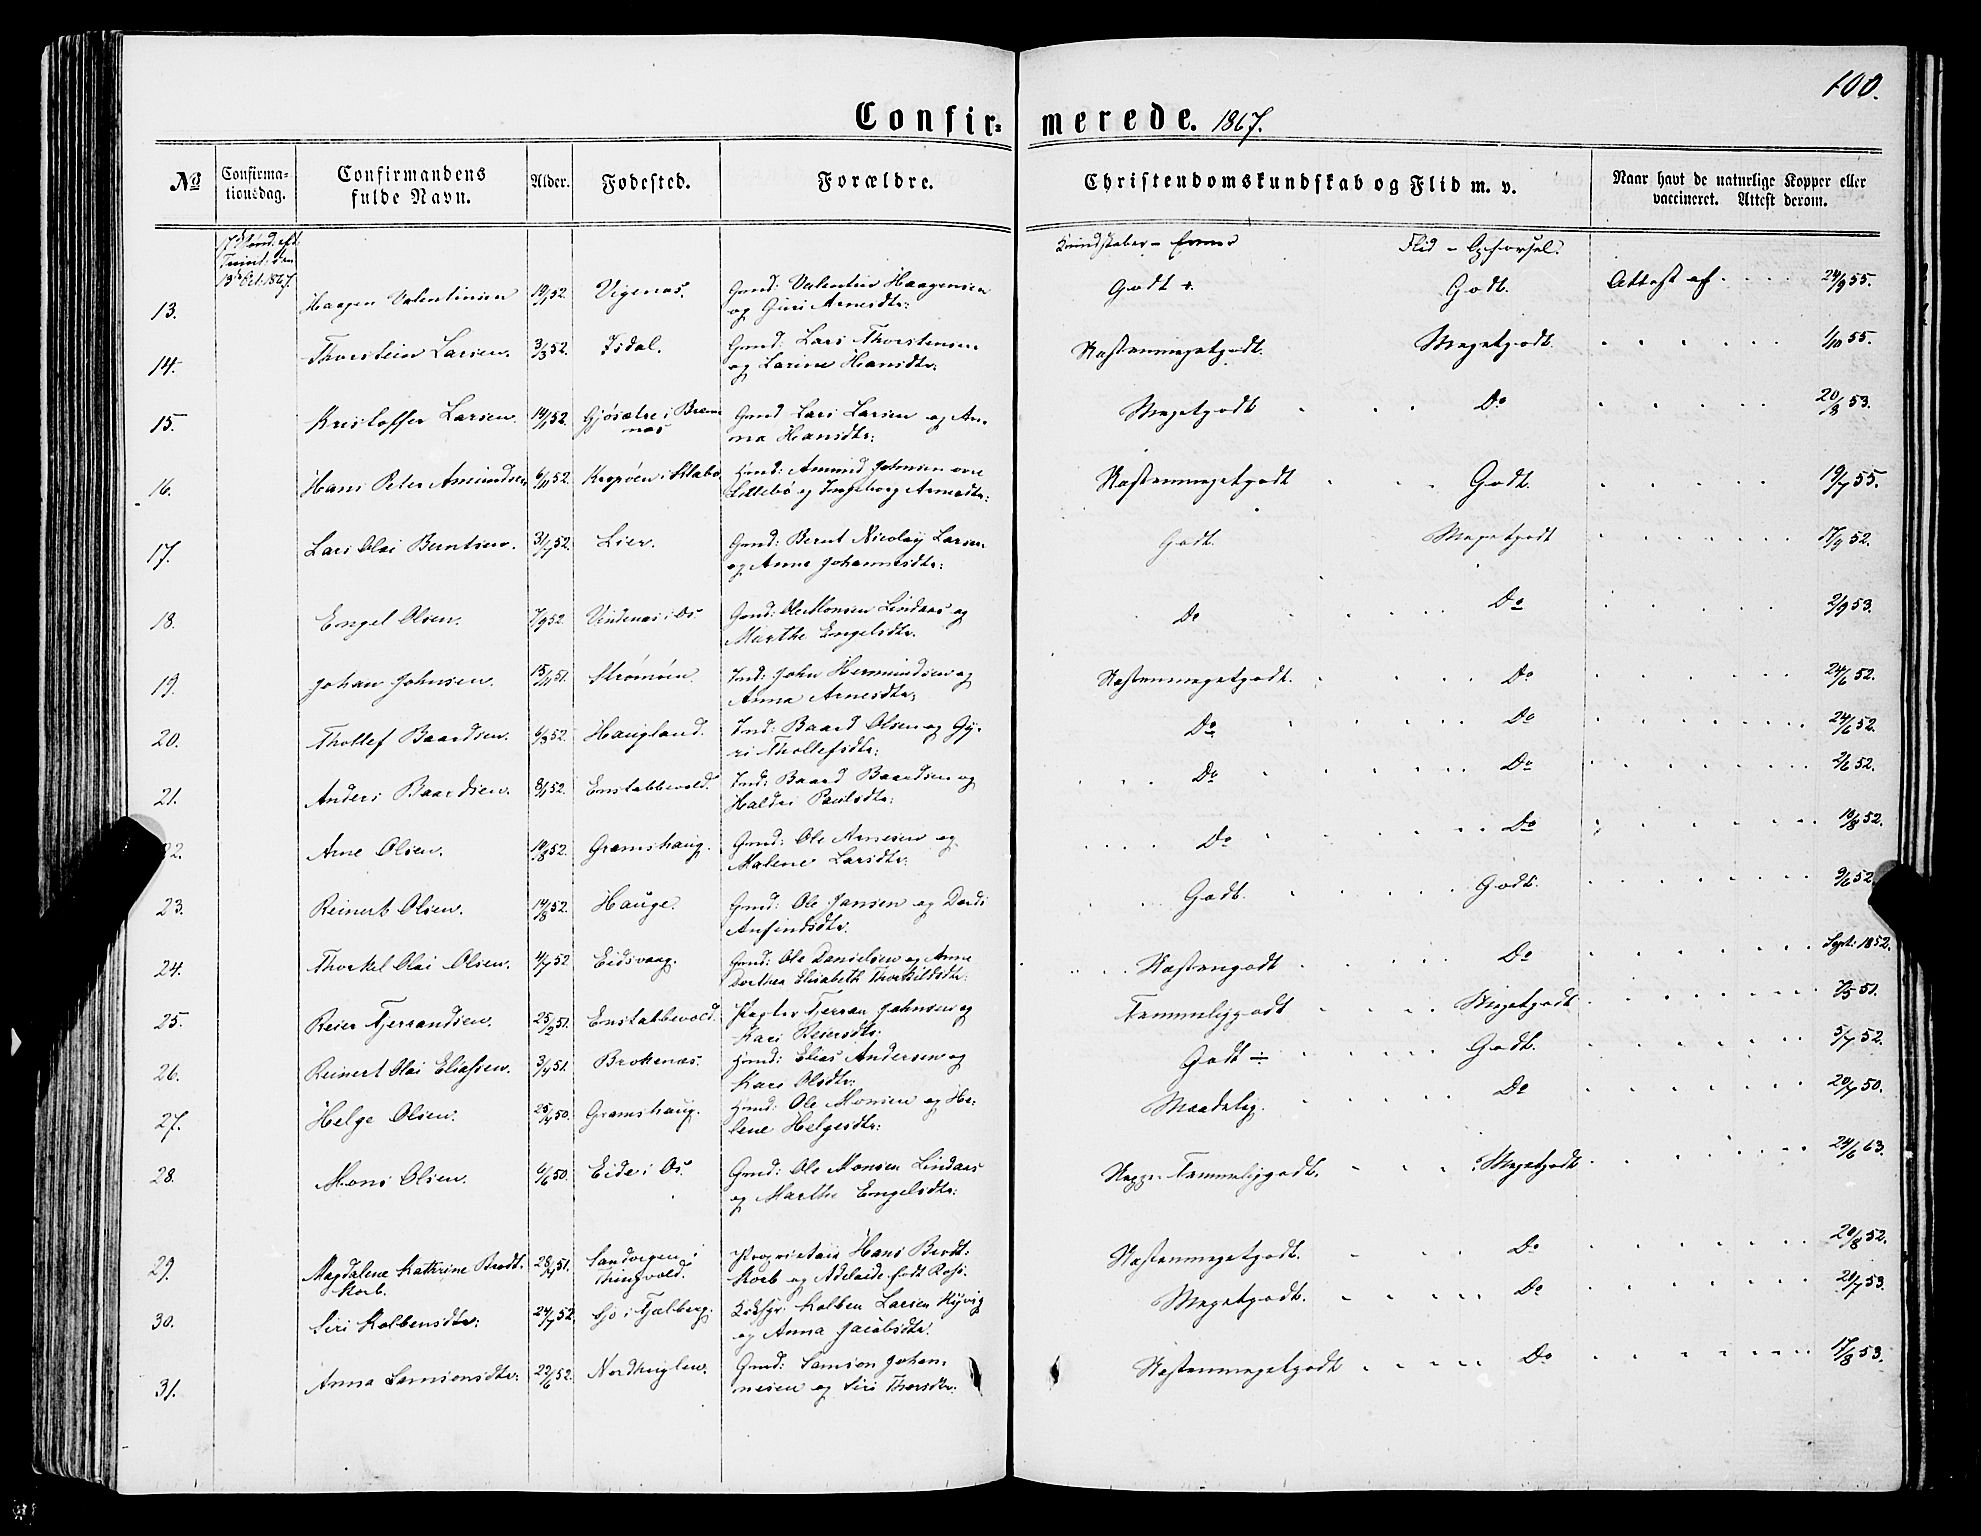 100.
Confirmerede. 1867.
No Confirmationsdag. Confirmandens fulde Navn. Alder. Fødested. Forældre. Christendomskundskab og Flid m. v. Naar havt de naturlige Kopper eller vaccineret. Attest derom.
17de Sønd. eft. Trinit. den 13de Oct. 1867. Kundskaber - Evner Flid - Opførsel.
13. Haagen Valentinsen 52. Vigenæs. Gmd: Valentin Haagensen og Guri Arnesdtr: Godt +. Godt. Attest af 24/9 55.
14. Thorstein Larsen. 3/3 52. Isdal. Gmd: Lars Thorstensen og Larine Hansdtr: Næstenmegetgodt. Megetgodt. 1/10 55.
15. Kristoffer Larsen. 14/1 52. Gjøsætre i Bremnæs Gmd Lars Larsen og Anna Hansdtr: Megetgodt Do 20/8 53.
16. Hans Peter Amundsen 6/11 52. Amund Johnsen øvre Littlebø og Ingeborg Arnesdtr: Næstenmegetgodt Godt. 19/7 55.
17. Lars Olai Berntsen. 3/7 52. Lier. Gmd: Bernt Nicolay Larsen og Anne Johannesdtr: Godt. Megetgodt 17/9 52.
18. Engel Olsen. 7/9 52. Vindenæs i Os. Gmd: Ole Monsen Lindaas og Marthe Engelsdtr. Do Do 2/9 53.
19. Johan Johnsen. 15/11 51. Strømøen. Ind: John Hermundsen og Anna Arnesdtr: Næstenmegetgodt. Do 24/6 52.
20. Thollef Baardsen. 6/3 52. Haugland. Ind: Baard Olsen og Gyri Thollefsdtr: Do Do 24/6 52.
21. Anders Baardsen. 8/1 52. Enstabbevold. Ind: Baard Baardsen og Haldri Paulsdtr: Do Do 2/6 52.
22. Arne Olsen. 52. Gramshaug. Gmd: Ole Arnesen og Malene Larsdtr: Do Do 10/8 52.
23. Reinert Olsen. 14/8 52. Hauge. Gmd: Ole Jansen og Dordi Anfindsdtr. Godt. Godt. 9/6 52
24. Thorkel Olai Olsen. 4/7 52 Eidsvaag. Gmd: Ole Danielsen og Anne Dorthea Elisabeth Thorkildsdtr: Næstengodt Do Sept: 1852.
25. Reier Fjerrandsen. 25/2 51. Enstabbevold. Fjerran Johnsen og Kari Reiersdtr: Temmeligodt Megetgodt 51.
26. Reinert Olai Eliassen. 3/4 51. Brokenæs. Hmd: Elias Andersen og Kari Olsdtr: Godt ÷ Godt. 5/7 52.
27. Helge Olsen. 25/4 50. Gramshaug. Hmd: Ole Monsen og Helene Helgesdtr: Maadelig. Do 20/7 50.
28. Mons Olsen. 6/6 50. Eide i Os. Gmd: Ole Monsen Lindaas og Marthe Engelsdtr: Neppe Temmeligodt. Megetgodt 24/6 63.
29. Magdalene Kathrine Brodtkorb. 28/4 51. Sandvegen i Thingvold. Proprietair Hans Brodtkorb og Adelaide født Ross. Næstenmegetgodt. Do 20/8 52.
30. Siri Kolbensdtr: 24/7 52. i Fjelberg. Kolben Larsen Kyvig og Anna Jacobsdtr. Megetgodt. Do 20/7 53.
31. Anna Samsonsdtr: 22/6 52. Nordhuglen. Gmd: Samson Johannesen og Siri Thorsdtr: Næstenmegetgodt Do 17/8 53.